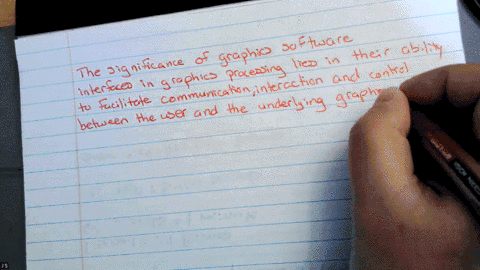 The significance of graphics software
interfaces in graphics processing lies in their ability
to facilitate communication, interaction and control
between the user and the underlying graph